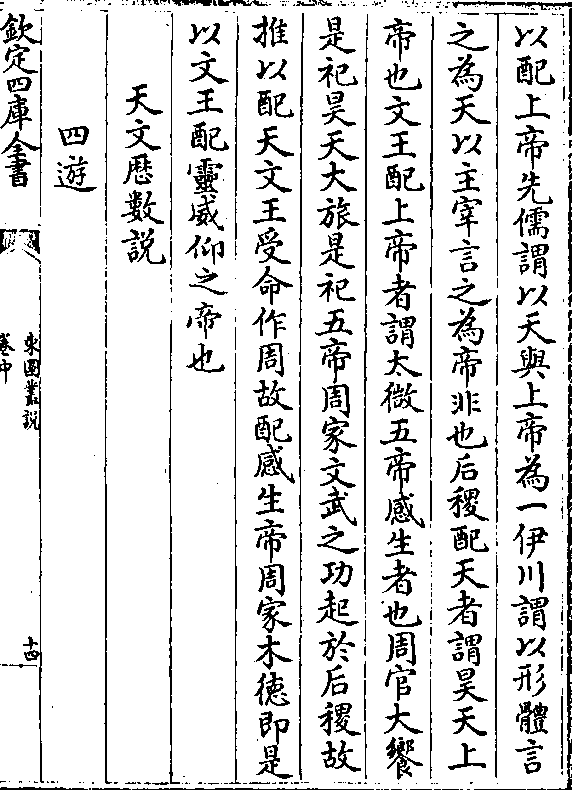 以配上帝先儒謂以天與上帝為一伊川謂以形體言
之為天以主宰言之為帝非也后稷配天者謂昊天上
帝也文王配上帝者謂太微五帝感生者也周官大饗
是祀昊天大旅是祀五帝周家文武之功起於后稷故
推以配天文王受命作周故配感生帝周家木德即是
以文王配靈威仰之帝也
天文厯數説
四遊
欽定四庫全書
東園叢説
卷中
十四